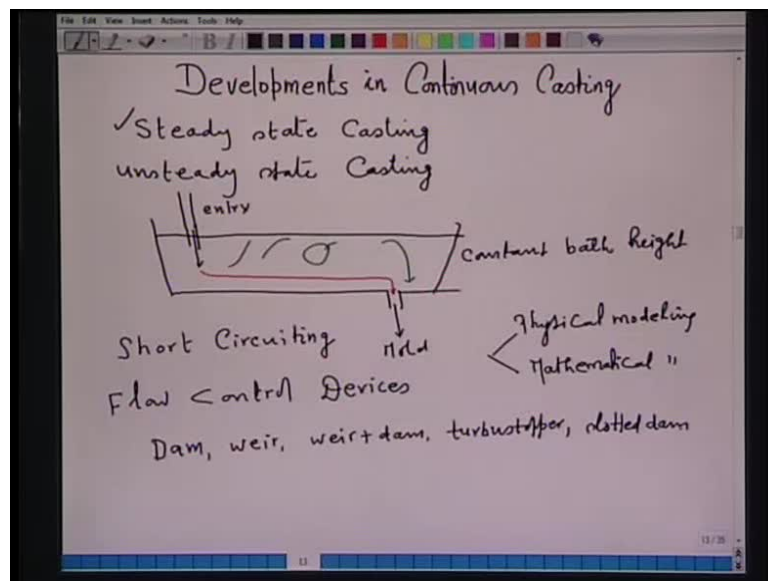 File Edit View Insert Actions Tools Help
Developments in Continuous Casting
✓Steady state Casting
unsteady state Casting
entry
Constant bath height
Mold
Short Circuiting
Physical modeling
Mathematical "
Flow Control Devices
Dam, weir, weir + dam, turbustopper, slotted dam
13/35
13